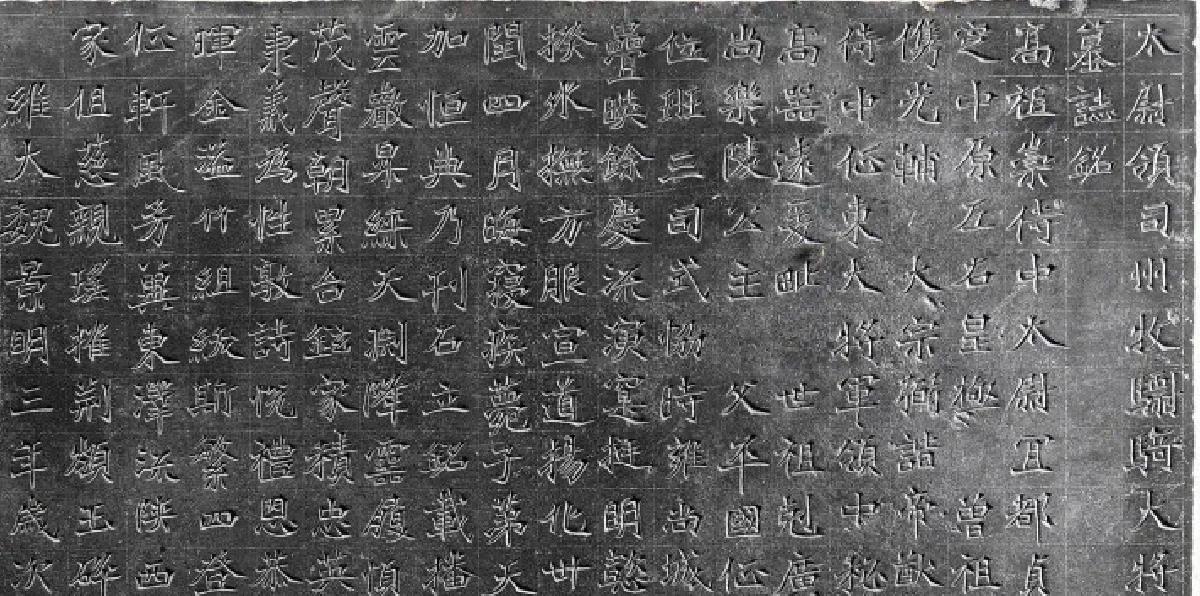 太尉領司州牧驃騎大將
墓誌銘
高祖崇侍中太尉宜都貞
定中原左右皇極曾祖
儁光輔大宗翰諧帝猷
侍中征東大將軍領中秘
高器遠夐毗世祖剋廣
尚樂陵公主父平國征
位班三司式協時雍尚城
疊暎餘慶流演寔挺明懿
揆水撫方服宣道揚化卅
閏四月晦寢疾薨于第天
加恒典乃刊石立銘載播
雲巖昇綵天淵降靈履順
茂聲朝累台鉉家積忠英
秉義為性敦詩悅禮恩恭
暉金莅竹組綬斯繁四登
征軒風芳冀東澤流陝西
家徂慈親瑤摧荊頹玉碎
維大魏景明三年歲次